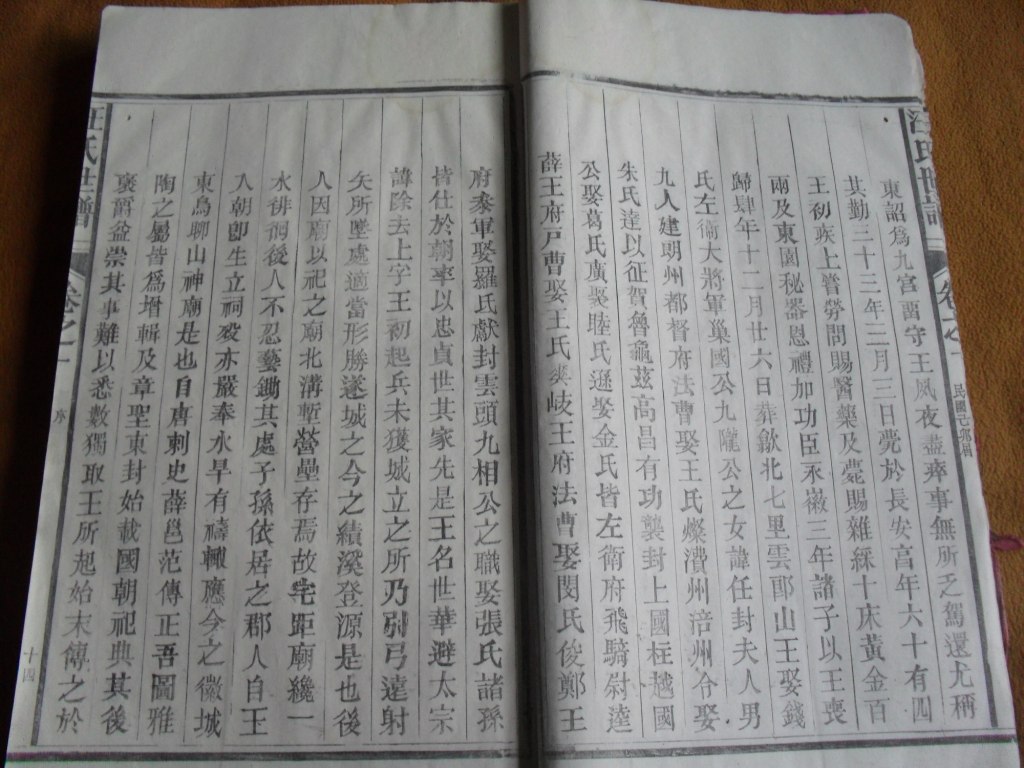 東詔爲九宮畱守王夙夜盡齊事無所乏駕還尤稱
其勤二十三年三月三日薨於長安享年六十有四
王初疾上嘗勞問賜醫藥及薨賜雜綵十床黃金百
兩及東園秘器恩禮加功臣永徽三年諸子以王喪
歸肆年十二月廿六日葬歙北七里雲郎山王娶錢
氏左衛大將軍巢國公九隴公之女諱任封夫人男
九人建朗州都督府法曹娶王氏燦灃州涪州令娶
朱氏達以征賀魯龜茲高昌有功襲封上國柱越國
公娶葛氏廣娶睦氏遜娶金氏皆左衛府飛騎尉逵
薛王府戸曹娶王氏爽岐王府法曹娶閔氏俊鄭王
府叅軍娶羅氏獻封雲頭九相公之職娶張氏諸孫
皆仕於朝率以忠貞世其家先是王名世華避太宗
諱除去上字王初起兵未獲城立之所乃引弓遠射
矢所墜處適當形勝遂城之今之績溪登源是也後
人因廟以祀之廟北溝塹營壘存焉故宅距廟纔一
水徘徊後人不忍藝鋤其處子孫依居之郡人自王
入朝卽生立祠歿亦嚴奉水旱有禱輒應今之徽城
東烏聊山神廟是也自唐刺史薛邕范傳正吾圖雅
陶之屬皆爲增輯及章聖東封始載國朝祀典其後
褒爵益崇其事難以悉數獨取王所起始末傳之於
汪氏世譜
卷之一
序
十四
汪氏世譜
卷之一